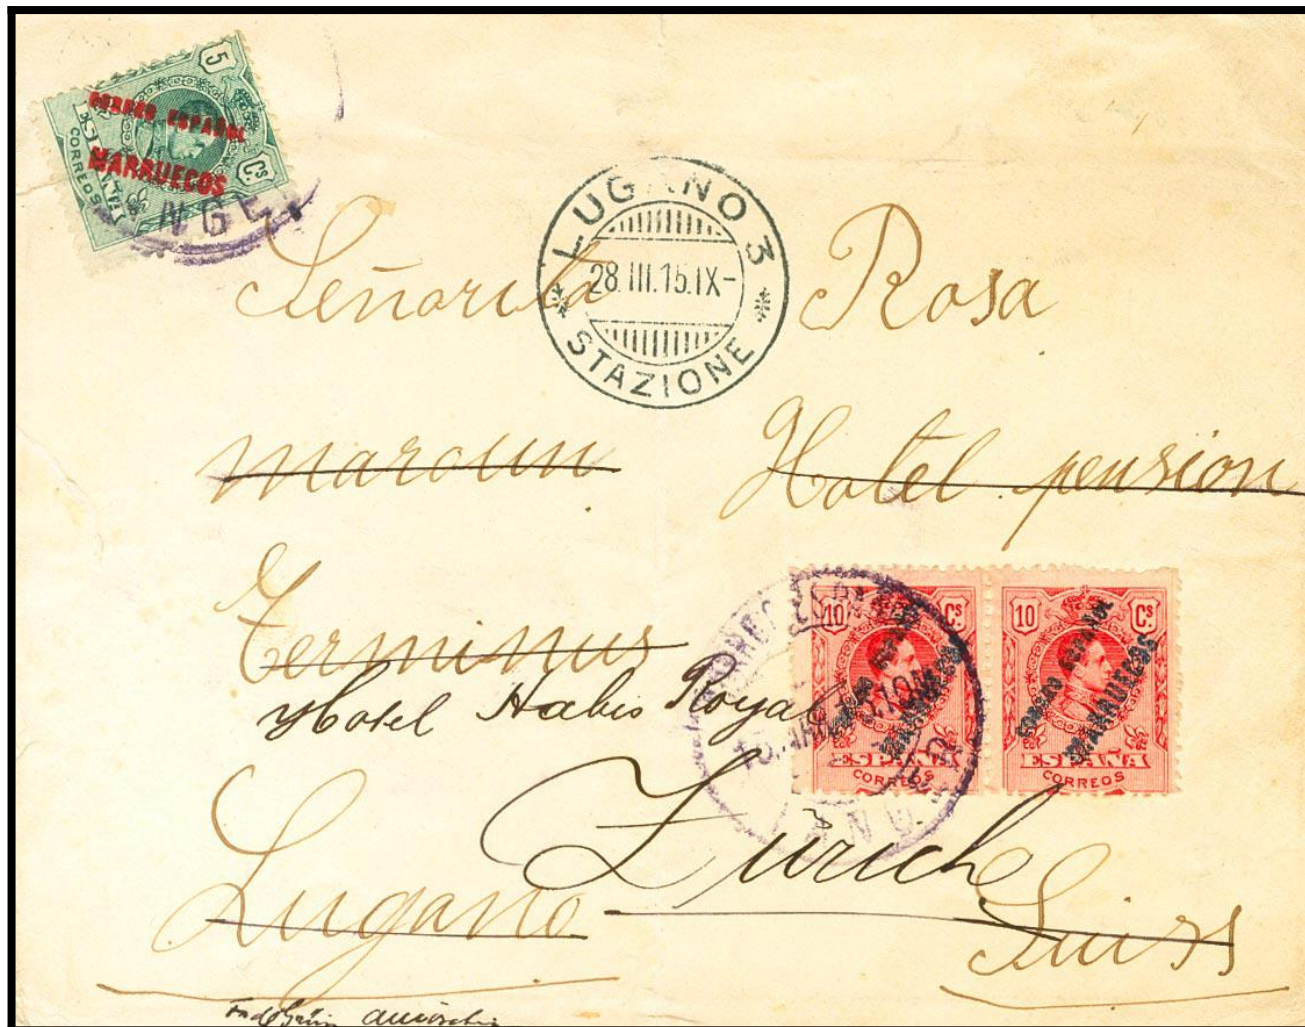 5 Cs
CORREO ESPAÑOL
MARRUECOS
ESPAÑA
CORREOS
NGE
LUGANO 3
28.III.15.IX-
STAZIONE
Señorita Rosa
Hotel pension
Terminus
Hotel Habis Royal
Zürich
Lugano
10 Cs
CORREO ESPAÑOL
MARRUECOS
ESPAÑA
CORREOS
10 Cs
CORREO ESPAÑOL
MARRUECOS
ESPAÑA
CORREOS